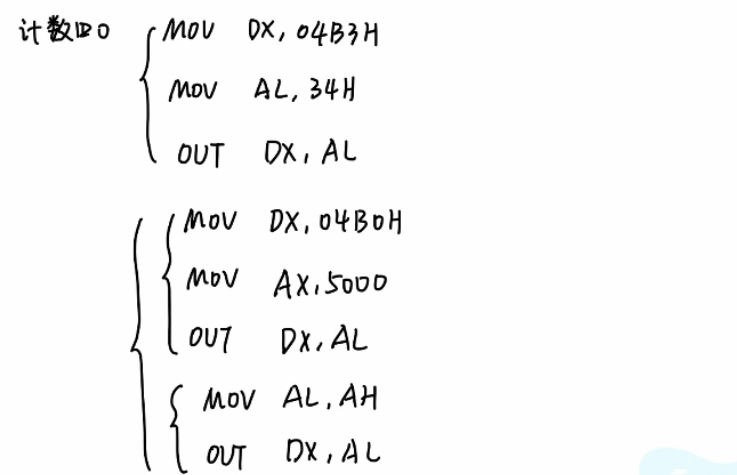 计数器0 MOV DX, 04B3H
MOV AL, 34H
OUT DX, AL
MOV DX, 04B0H
MOV AX, 5000
OUT DX, AL
MOV AL, AH
OUT DX, AL